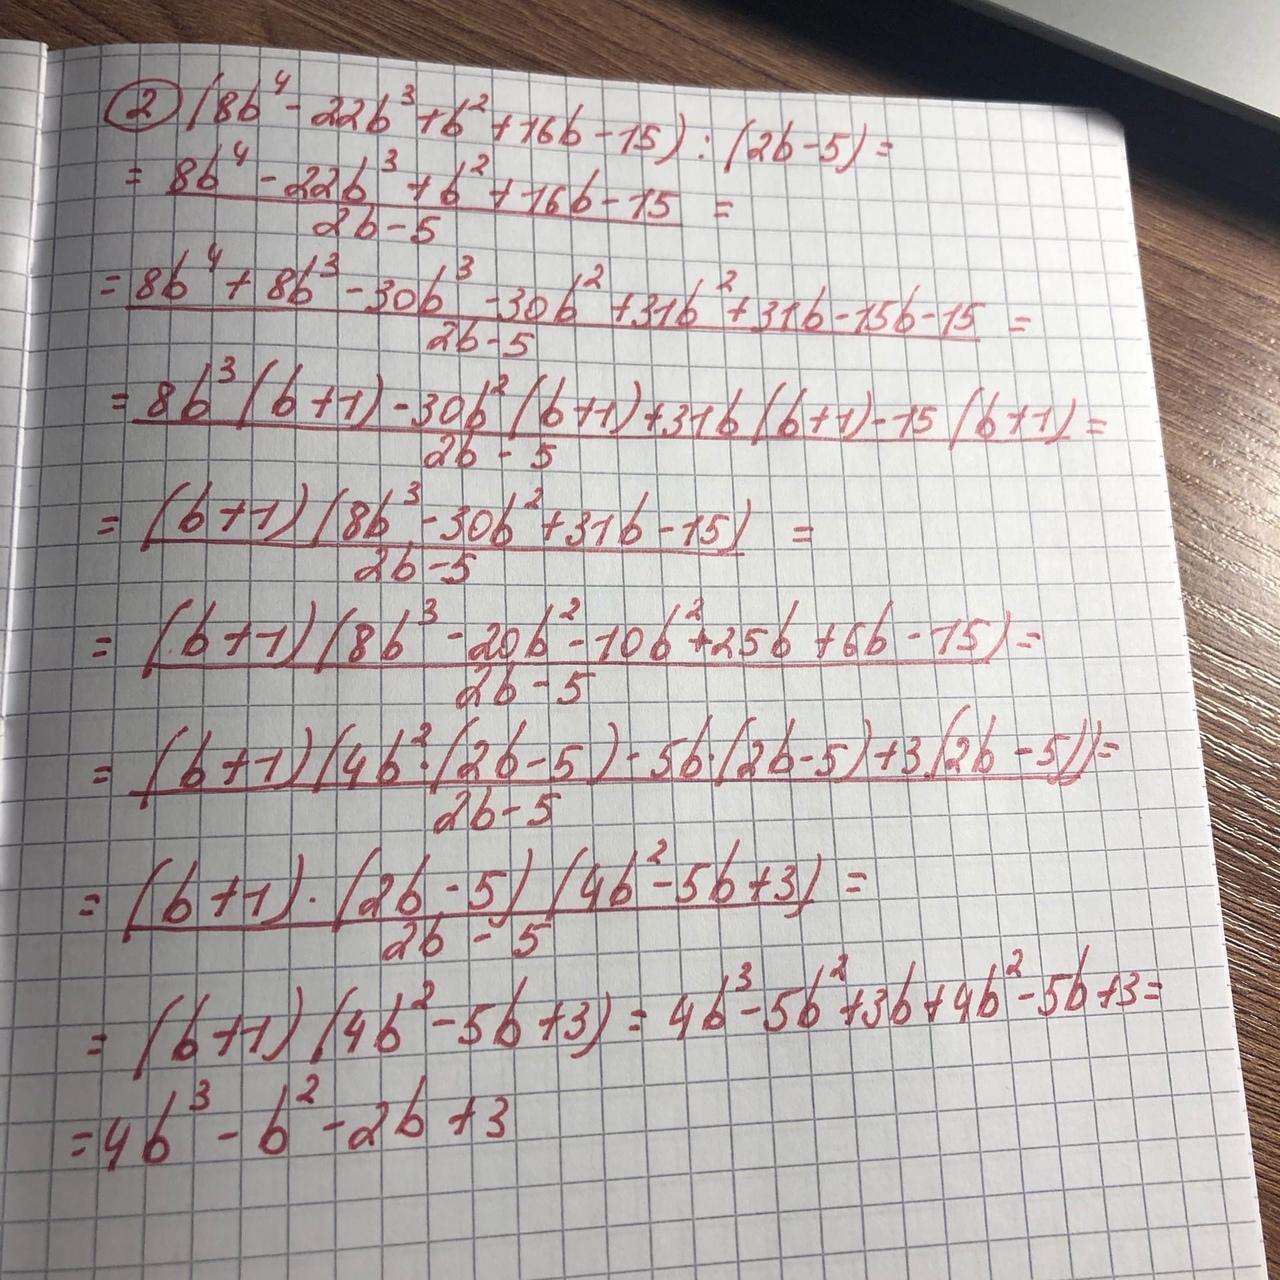 ② (8b⁴ - 22b³ + b² + 16b - 15) : (2b - 5) =
= 8b⁴ - 22b³ + b² + 16b - 15 =
2b - 5
= 8b⁴ + 8b³ - 30b³ - 30b² + 31b² + 31b - 15b - 15 =
2b - 5
= 8b³ (b + 1) - 30b² (b + 1) + 31b (b + 1) - 15 (b + 1) =
2b - 5
= (b + 1) (8b³ - 30b² + 31b - 15) =
2b - 5
= (b + 1) (8b³ - 20b² - 10b² + 25b + 6b - 15) =
2b - 5
= (b + 1) (4b² · (2b - 5) - 5b · (2b - 5) + 3 (2b - 5)) =
2b - 5
= (b + 1) · (2b - 5) (4b² - 5b + 3) =
2b - 5
= (b + 1) (4b² - 5b + 3) = 4b³ - 5b² + 3b + 4b² - 5b + 3 =
= 4b³ - b² - 2b + 3